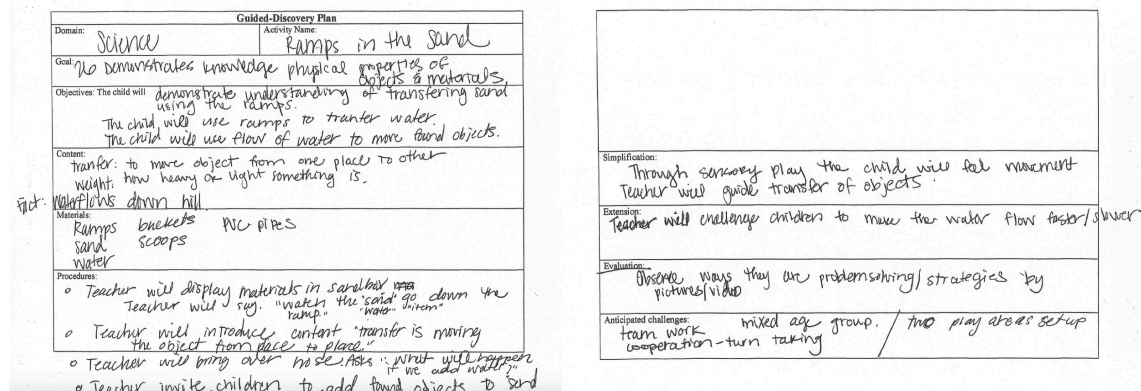 Guided-Discovery Plan
Domain: Science
Activity Name: Ramps in the Sand
Goal: 26 Demonstrates knowledge physical properties of
objects & materials.
Objectives: The child will demonstrate understanding of transfering sand
using the ramps.
The child will use ramps to tranter water.
The child will use flow of water to move found objects.
Content:
tranfer: to move object from one place to other
weight: how heavy or light something is.
Fact: Waterflows down hill
Materials:
Ramps buckets PVC pipes
sand scoops
water
Procedures:
Teacher will display materials in sandbox
Teacher will say. "watch the "sand" go down the
ramp." "water" "item"
Teacher will introduce content "transfer is moving
the object from place to place."
Teacher will bring over hose. Asks "what will happen
if we add water?"
Teacher invite children to add found objects to send
Simplification:
Through sensory play the child will feel movement
Teacher will guide transfer of objects.
Extension:
Teacher will challenge children to make the water flow faster/slower
Evaluation:
Observe ways they are problemsolving/strategies by
pictures/video
Anticipated challenges:
team work mixed age group. / two play areas setup
cooperation-turn taking